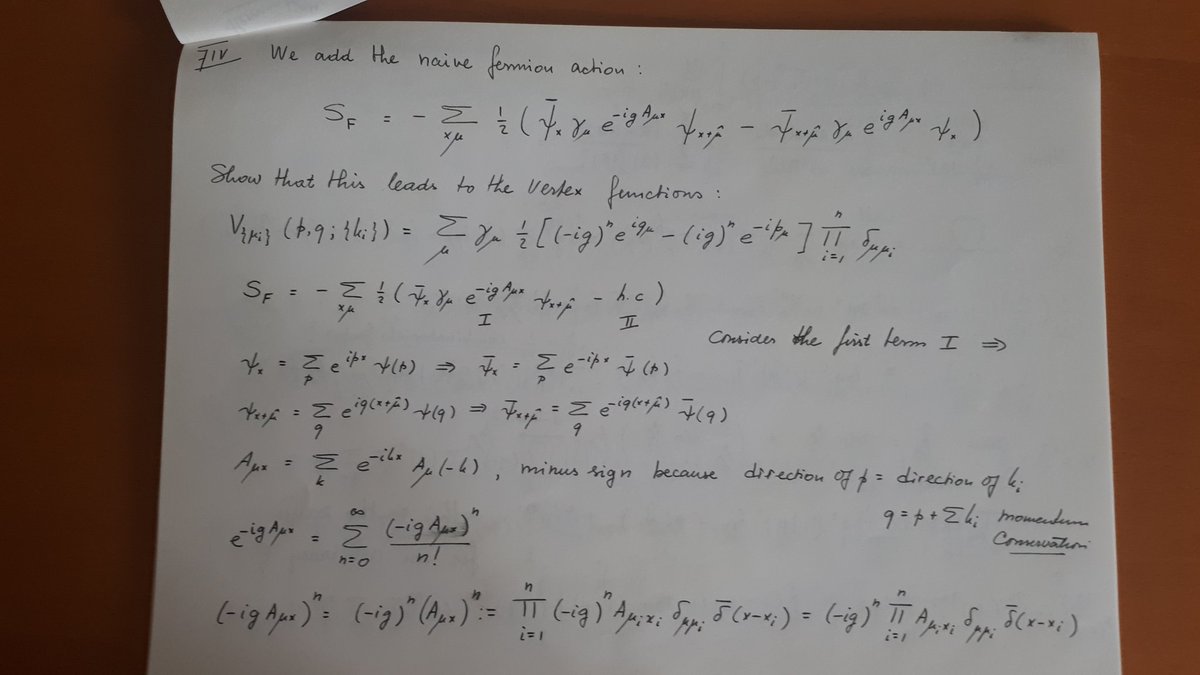 7IV We add the naive fermion action :
S_F = - Σ_{xμ} ½ ( ψ̄_x γ_μ e^{-igA_{μx}} ψ_{x+μ̂} - ψ̄_{x+μ̂} γ_μ e^{igA_{μx}} ψ_x )
Show that this leads to the vertex functions :
V_{{μ_i}} (p,q ; {k_i}) = Σ_μ γ_μ ½ [ (-ig)^n e^{iq_μ} - (ig)^n e^{-ip_μ} ] ∏_{i=1}^n δ_{μμ_i}
S_F = - Σ_{xμ} ½ ( ψ̄_x γ_μ e^{-igA_{μx}} ψ_{x+μ̂} - h.c )
I II
Consider the first term I ⇒
ψ_x = Σ_p e^{ipx} ψ(p) ⇒ ψ̄_x = Σ_p e^{-ipx} ψ̄(p)
ψ_{x+μ̂} = Σ_q e^{iq(x+μ̂)} ψ(q) ⇒ ψ̄_{x+μ̂} = Σ_q e^{-iq(x+μ̂)} ψ̄(q)
A_{μx} = Σ_k e^{-ikx} A_μ(-k) , minus sign because direction of p = direction of k_i
q = p + Σk_i momentum
conservation
e^{-igA_{μx}} = Σ_{n=0}^∞ (-igA_{μx})^n / n!
(-igA_{μx})^n = (-ig)^n (A_{μx})^n := ∏_{i=1}^n (-ig)^n A_{μ_i x_i} δ_{μμ_i} δ̄(x-x_i) = (-ig)^n ∏_{i=1}^n A_{μ_i x_i} δ_{μμ_i} δ̄(x-x_i)